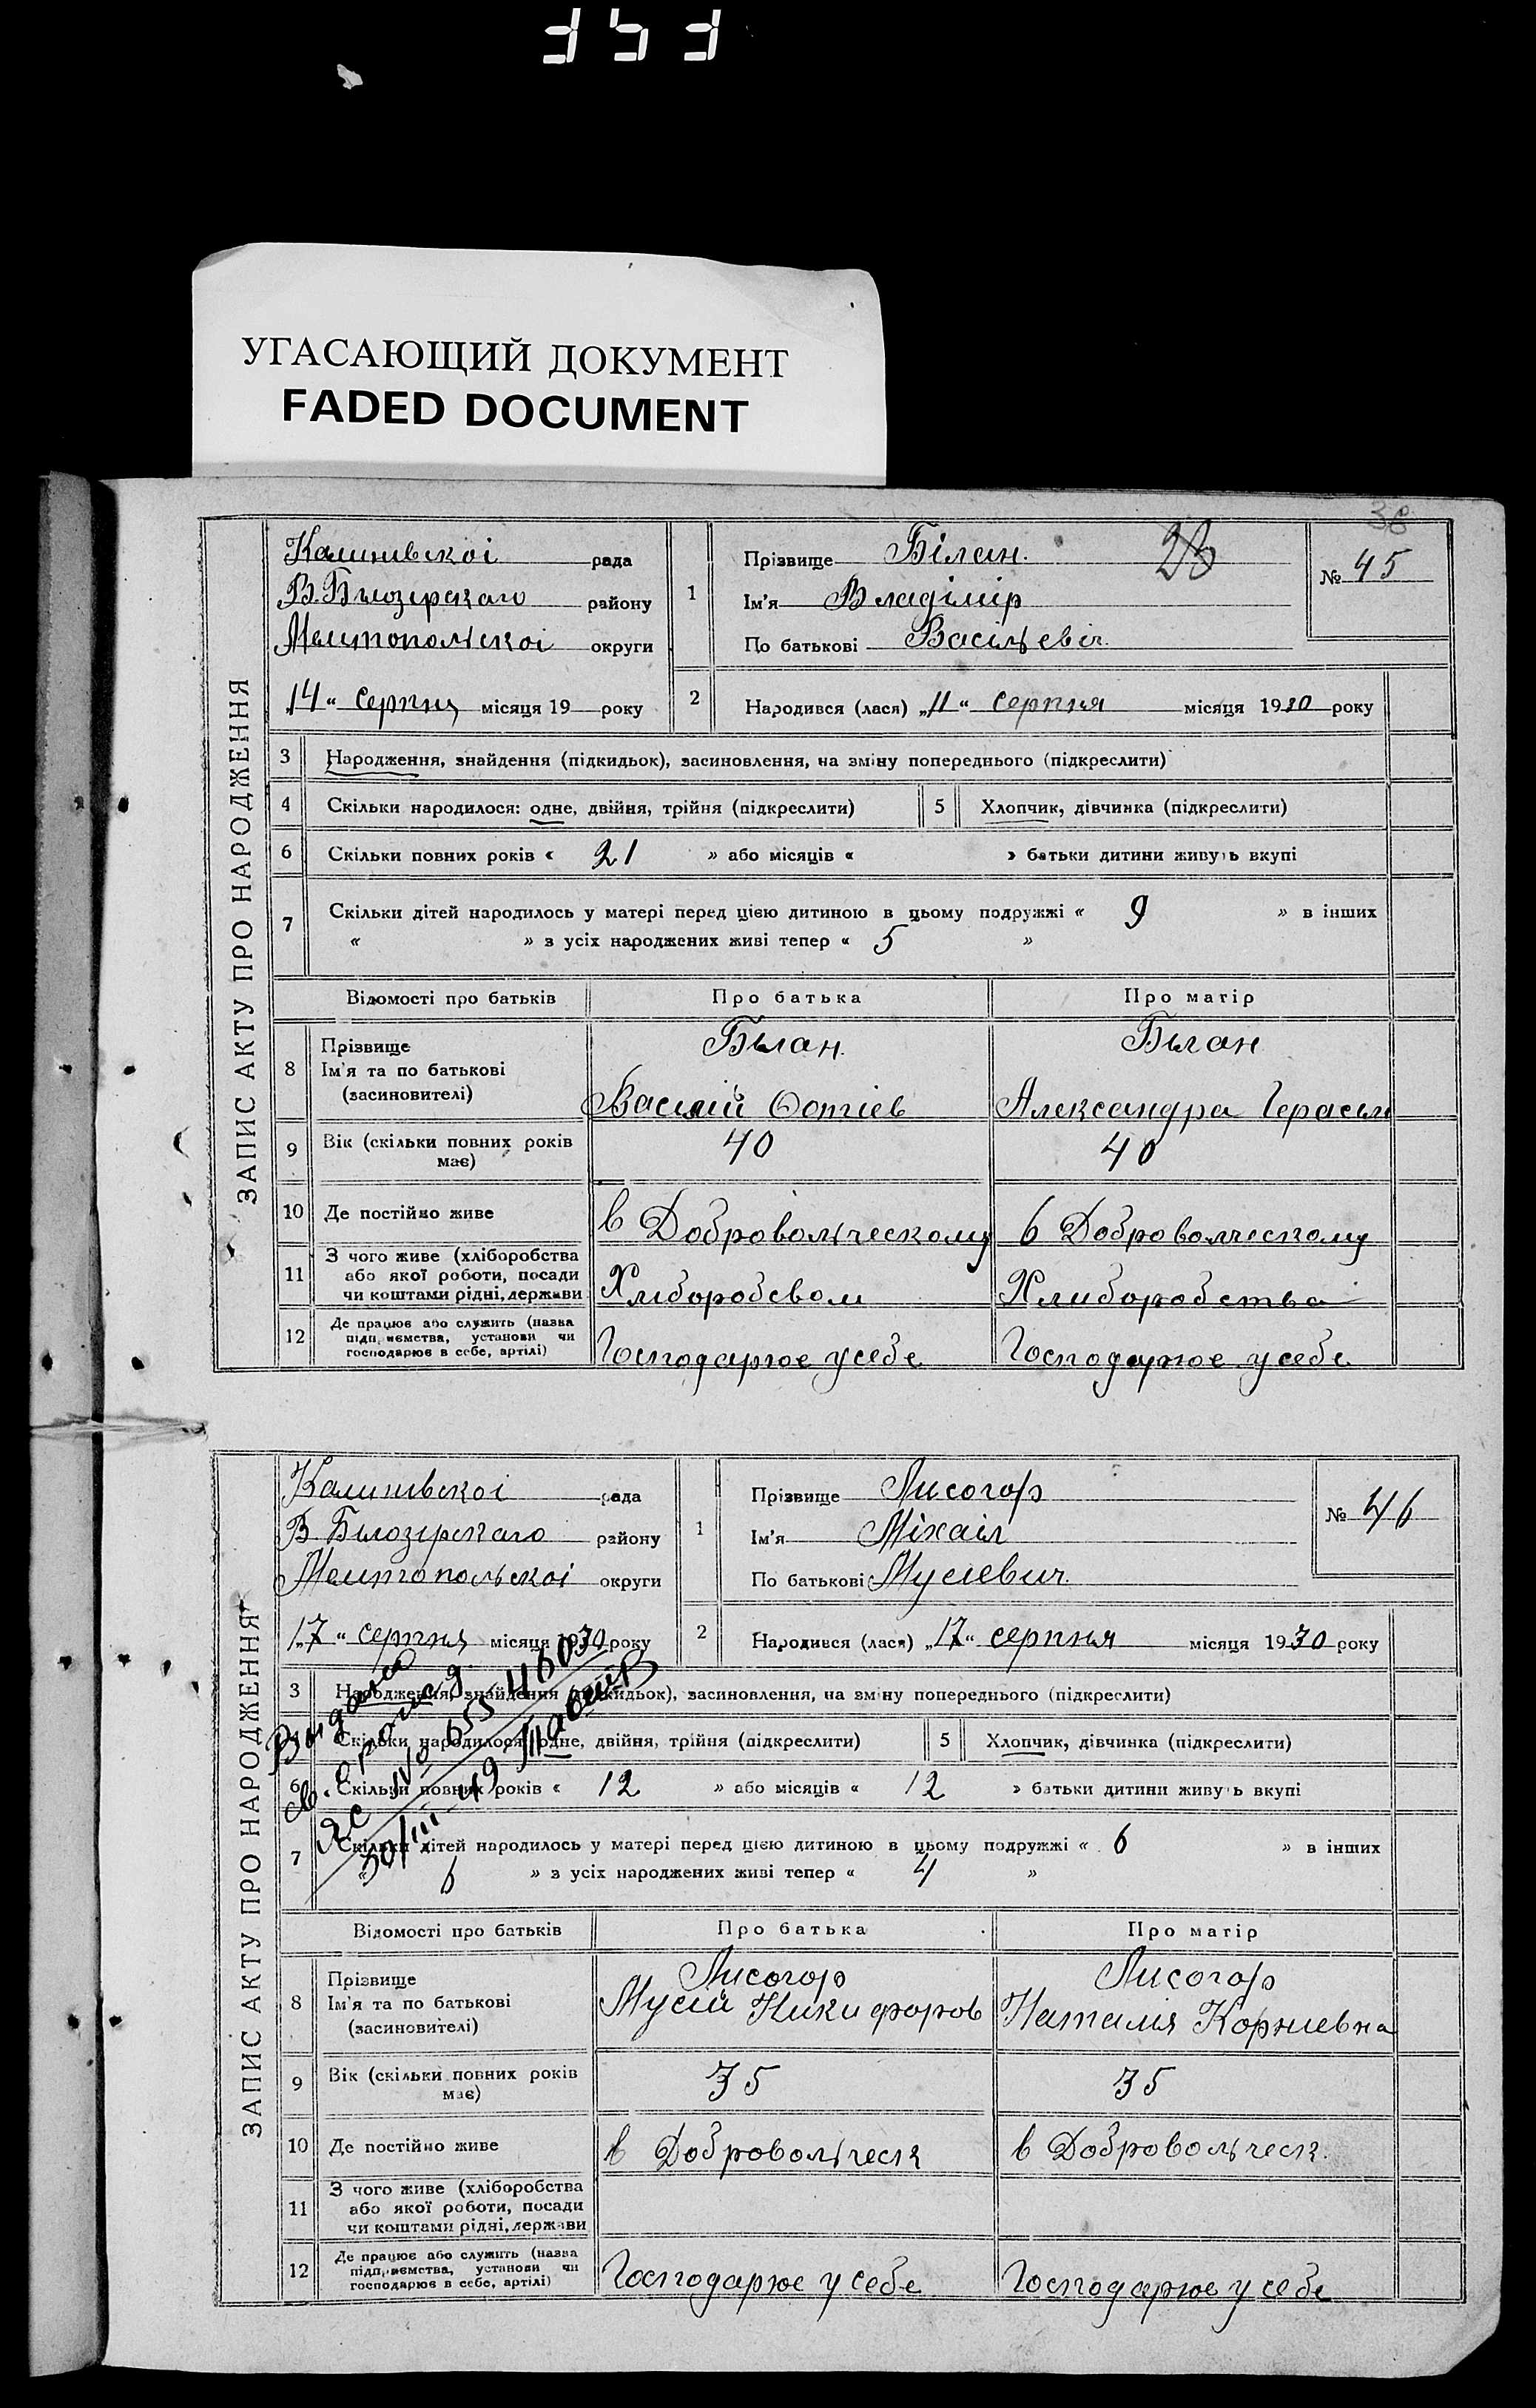 УГАСАЮЩИЙ ДОКУМЕНТ
FADED DOCUMENT
38
ЗАПИС АКТУ ПРО НАРОДЖЕННЯ
Калинівскоі рада
В. Білозірскаго району
Мелитопольскоі округи
„14“ серпня місяця 19 року
1 Прізвище Білан. 28
Ім'я Владімір
По батькові Васільевіч.
№ 45
2 Народився (лася) „11“ серпня місяця 1930 року
3 Народження, знайдення (підкидьок), засиновлення, на зміну попереднього (підкреслити)
4 Скільки народилося: одне, двійня, трійня (підкреслити) 5 Хлопчик, дівчинка (підкреслити)
6 Скільки повних років « 21 » або місяців « » батьки дитини живуть вкупі
7 Скільки дітей народилось у матері перед цією дитиною в цьому подружжі « 9 » в інших
« » з усіх народжених живі тепер « 5 »
Відомості про батьків Про батька Про матір
8 Прізвище Білан. Білан
Ім'я та по батькові
(засиновителі) Василій Фотіев Александра Герасим
9 Вік (скільки повних років має) 40 40
10 Де постійно живе в Добровольческому в Добровольческому
11 З чого живе (хліборобства
або якої роботи, посади
чи коштами рідні, держави Хліборобсвом Хлиборобства
12 Де працює або служить (назва
підприємства, установи чи
господарює в себе, артілі) Господарює у себе Господарює у себе
ЗАПИС АКТУ ПРО НАРОДЖЕННЯ
Калинівскоі рада
В. Білозірскаго району
Мелитопольскоі округи
„17“ серпня місяця 1930 року
1 Прізвище Лисогор
Ім'я Міхаіл
По батькові Мусіевич.
№ 46
2 Народився (лася) „17“ серпня місяця 1930 року
3 Народження, знайдення (підкидьок), засиновлення, на зміну попереднього (підкреслити)
4 Скільки народилося: одне, двійня, трійня (підкреслити) 5 Хлопчик, дівчинка (підкреслити)
6 Скільки повних років « 12 » або місяців « 12 » батьки дитини живуть вкупі
7 Скільки дітей народилось у матері перед цією дитиною в цьому подружжі « 6 » в інших
« 6 » з усіх народжених живі тепер « 4 »
Выдано
св. о рожд.
ЯС №
30/III-49
Відомості про батьків Про батька Про матір
8 Прізвище Лисогор Лисогор
Ім'я та по батькові Мусій Никифоров Наталія Корниевна
(засиновителі)
9 Вік (скільки повних років має) 35 35
10 Де постійно живе в Добровольческ в Добровольческ.
11 З чого живе (хліборобства
або якої роботи, посади
чи коштами рідні, держави
12 Де працює або служить (назва
підприємства, установи чи
господарює в себе, артілі) Господарює у себе Господарює у себе